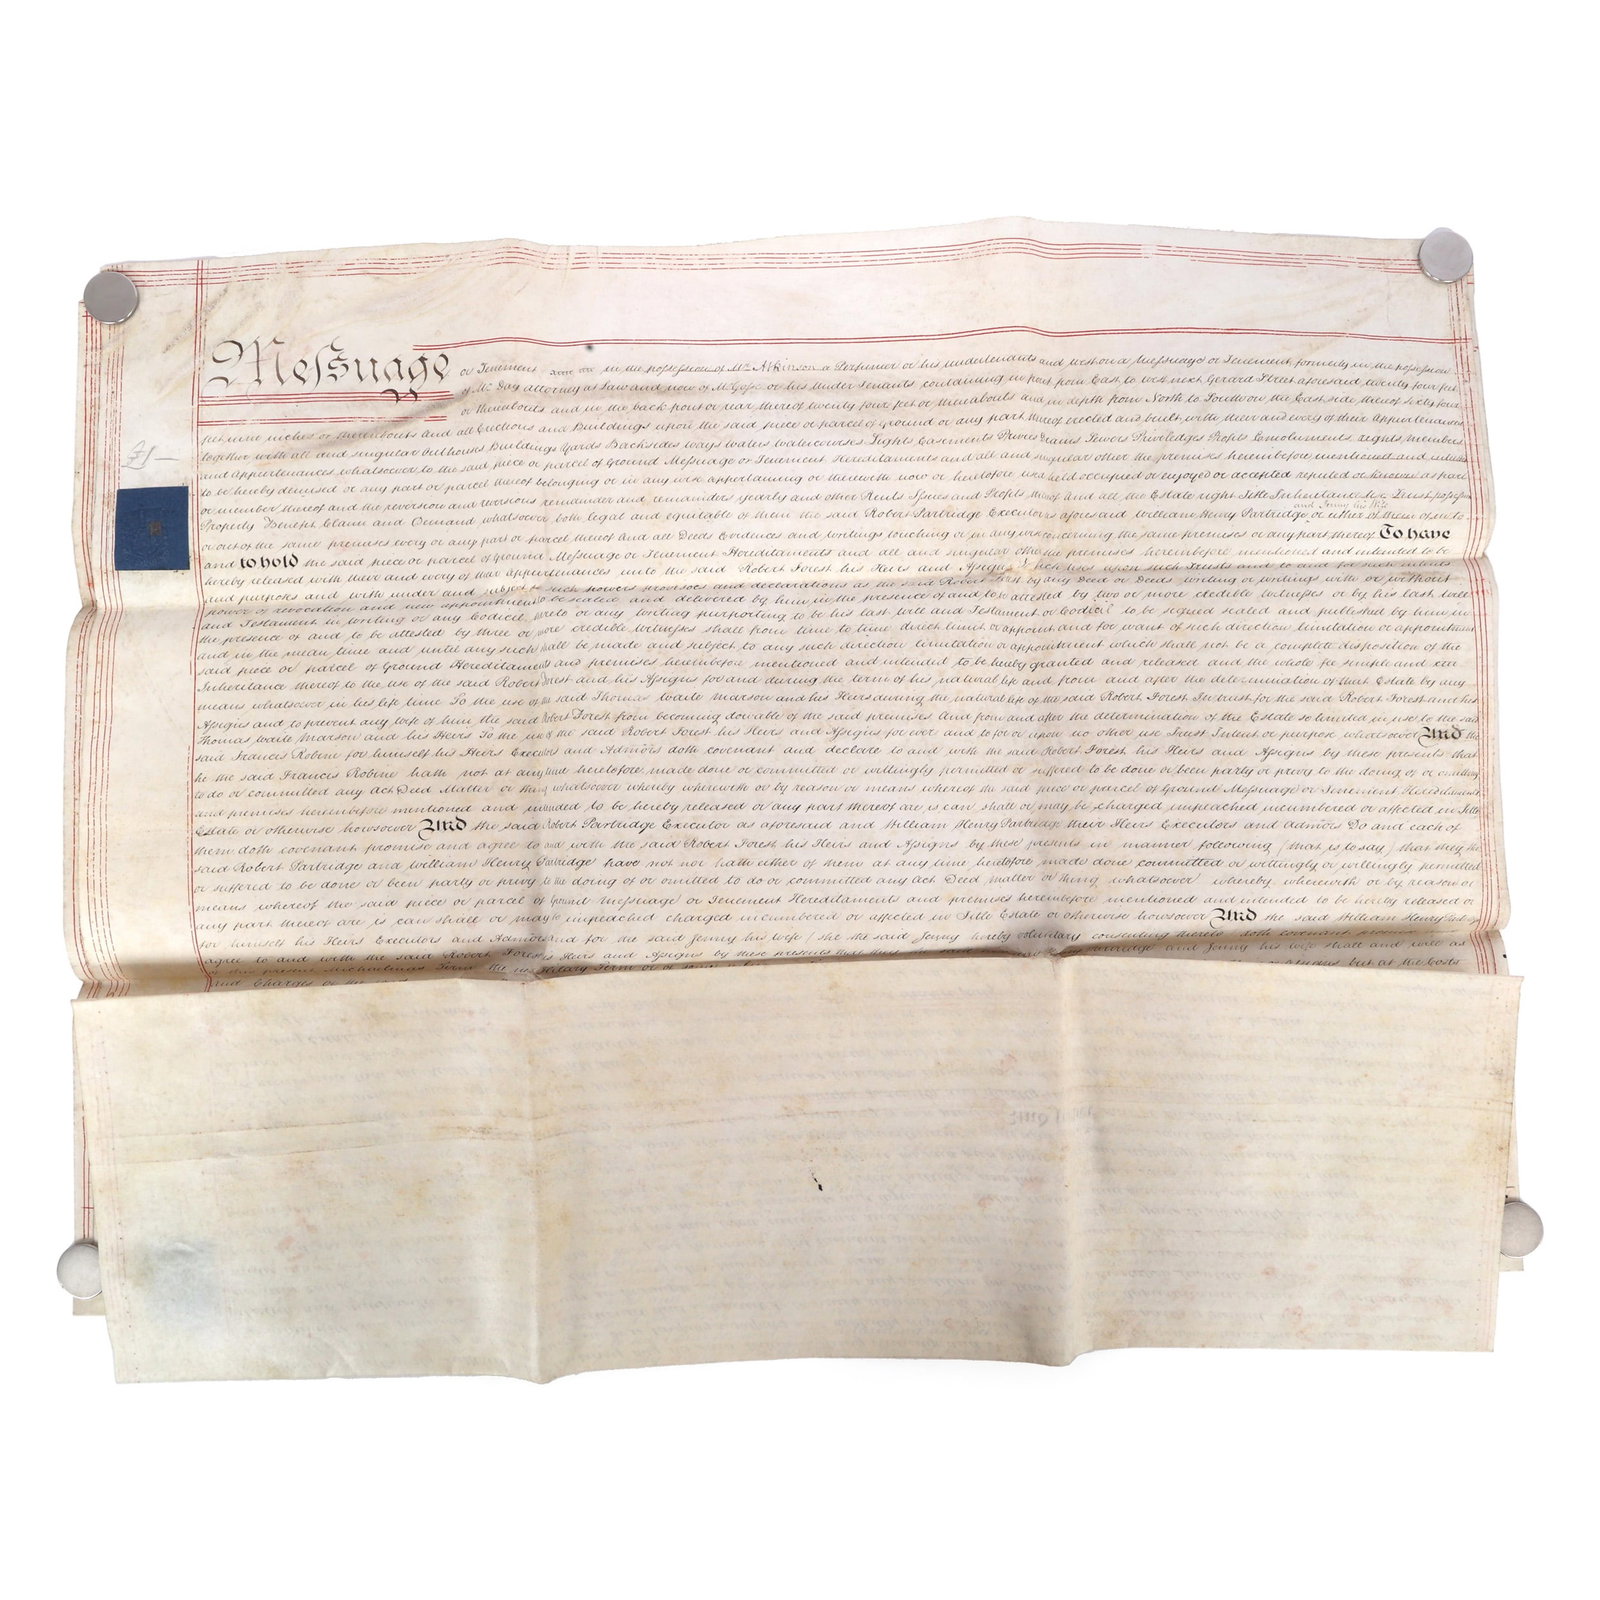 Meſsuage or Tenement in the poſseſsion of Mr. Atkinson a Perfumer or his undertenants and west on a Meſsuage or Tenement formerly in the poſseſsion
of Mr. Day attorney at Law and now of Mr. or his Under Tenants containing in front from East to West next Gerard Street aforesaid twenty four feet
or thereabouts and in the back front or rear thereof twenty four feet or thereabouts and in depth from North to South on the East side thereof sixty four
feet nine inches or thereabouts And all Erections and Buildings upon the said piece or parcel of ground or any part thereof erected and built with their and every of their Appurtenances
together with all and singular Outhouses Buildings Yards Backsides ways waters watercourses Lights Easements Privies Drains Sewers Priviledges Profits Emoluments rights members
and appurtenances whatsoever to the said piece or parcel of Ground Meſsuage or Tenement Hereditaments and all and singular other the premises hereinbefore mentioned and intended
to be hereby demised or any part or parcel thereof belonging or in any wise appertaining or therewith now or heretofore used held occupied or enjoyed or accepted reputed or known as part
£1-
or member thereof and the reversion and reversions remainder and remainders yearly and other Rents Iſsues and Profits thereof And all the Estate right Title Inheritance Use Trust poſseſsion
and Jenny his Wife
Property Benefit Claim and Demand whatsoever both legal and equitable of them the said Robert Partridge Executor as aforesaid William Henry Partridge or either of them of in to
or out of the same premises every or any part or parcel thereof And all Deeds Evidences and writings touching or in any wise concerning the same premises or any part thereof To have
and to hold the said piece or parcel of Ground Meſsuage or Tenement Hereditaments and all and singular other the premises hereinbefore mentioned and intended to be
hereby released with their and every of their appurtenances unto the said Robert Forest his Heirs and Aſsigns upon such Trusts and to and for such intents
and purposes and with under and subject to such powers provisoes and declarations as the said Robert Forest by any Deed or Deeds writing or writings with or without
power of revocation and new appointment to be sealed and delivered by him in the presence of and to be attested by two or more credible witneſses or by his last Will
and Testament in writing or any Codicil thereto or any writing purporting to be his last Will and Testament or Codicil to be signed sealed and published by him in
the presence of and to be attested by three or more credible witneſses shall from time to time direct limit or appoint and for want of such direction limitation or appointment
and in the mean time and until any such shall be made and subject to any such direction limitation or appointment which shall not be a complete disposition of the
said piece or parcel of Ground Hereditaments and premises hereinbefore mentioned and intended to be hereby granted and released and the whole fee simple and
Inheritance thereof to the use of the said Robert Forest and his Aſsigns for and during the term of his natural life and from and after the determination of that Estate by any
means whatsoever in his life time To the use of the said Thomas Waite Marson and his Heirs during the natural life of the said Robert Forest In trust for the said Robert Forest and his
Aſsigns and to prevent any wife of him the said Robert Forest from becoming dowable of the said premises And from and after the determination of the Estate so limited in use to the said
Thomas Waite Marson and his Heirs To the use of the said Robert Forest his Heirs and Aſsigns for ever and to for or upon no other use Trust Intent or purpose whatsoever And the
said Francis Robine for himself his Heirs Executors and Admors doth covenant and declare to and with the said Robert Forest his Heirs and Aſsigns by these presents that
he the said Francis Robine hath not at any time heretofore made done or committed or willingly permitted or suffered to be done or been party or privy to the doing of or omitting
to do or committed any act Deed Matter or thing whatsoever whereby wherewith or by reason or means whereof the said piece or parcel of ground Meſsuage or Tenement Hereditaments
and premises hereinbefore mentioned and intended to be hereby released or any part thereof are is can shall or may be charged impeached incumbered or affected in Title
Estate or otherwise howsoever And the said Robert Partridge Executor as aforesaid and William Henry Partridge their Heirs Executors and Admors Do and each of
them doth covenant promise and agree to and with the said Robert Forest his Heirs and Aſsigns by these presents in manner following (that is to say) that they the
said Robert Partridge and William Henry Partridge have not nor hath either of them at any time heretofore made done committed or wittingly or willingly permitted
or suffered to be done or been party or privy to the doing of or omitted to do or committed any act Deed matter or thing whatsoever whereby wherewith or by reason or
means whereof the said piece or parcel of Ground Meſsuage or Tenement Hereditaments and premises hereinbefore mentioned and intended to be hereby released or
any part thereof are is can shall or may be impeached charged incumbered or affected in Title Estate or otherwise howsoever And the said William Henry
for himself his Heirs Executors and Admors and for the said Jenny his wife (she the said Jenny hereby voluntary consenting thereto) doth covenant
agree to and with the said Robert Forest his Heirs and Aſsigns by these presents that and Jenny his wife shall and will as
this present Michaelmas Term the next Hilary Term or Aſsigns but at the Costs
and Charges of the